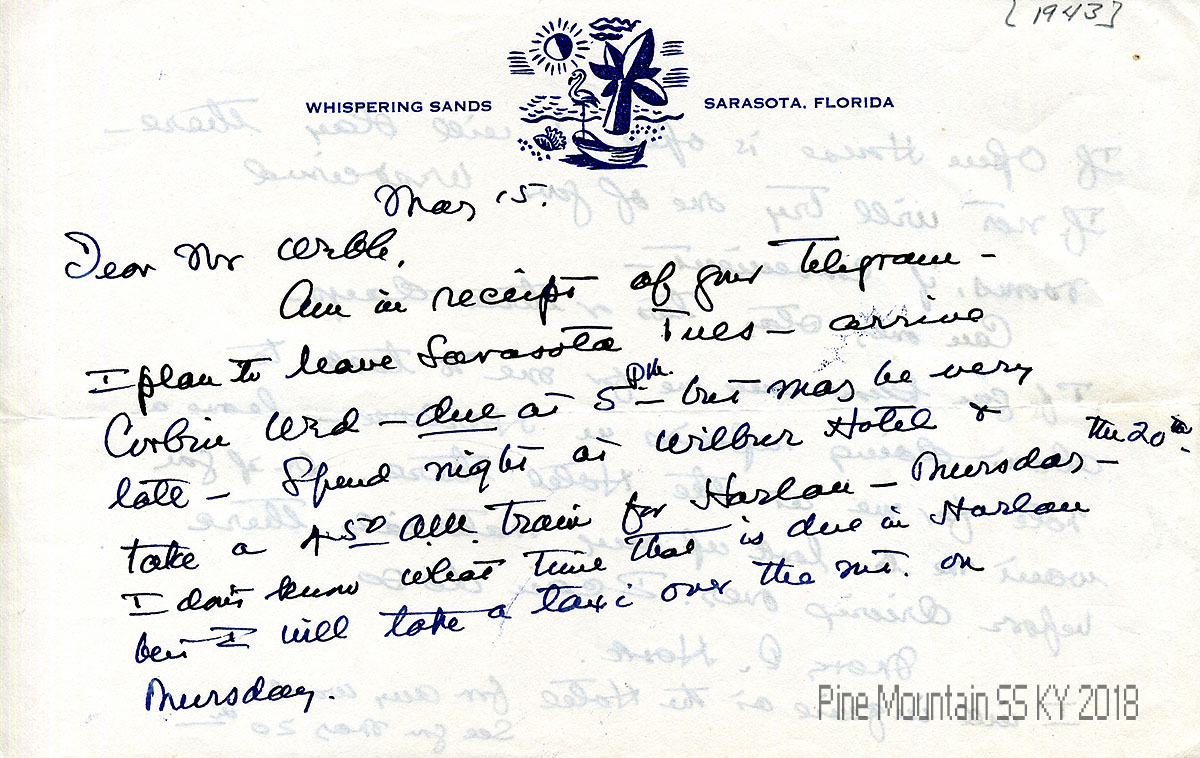 [1943]
WHISPERING SANDS SARASOTA, FLORIDA
May 15.
Dear Mr Webb,
Am in receipt of your Telegram –
I plan to leave Sarasota Tues – arrive
Corbin Wed – due at 5 P.M. – but may be very
late – Spend night at Wilbur Hotel &
take a 4 50 A.M. train for Harlan – Thursday – the 20th.
I don't know what time that is due in Harlan
but I will take a taxi over the mt. on
Thursday.
Pine Mountain SS KY 2018